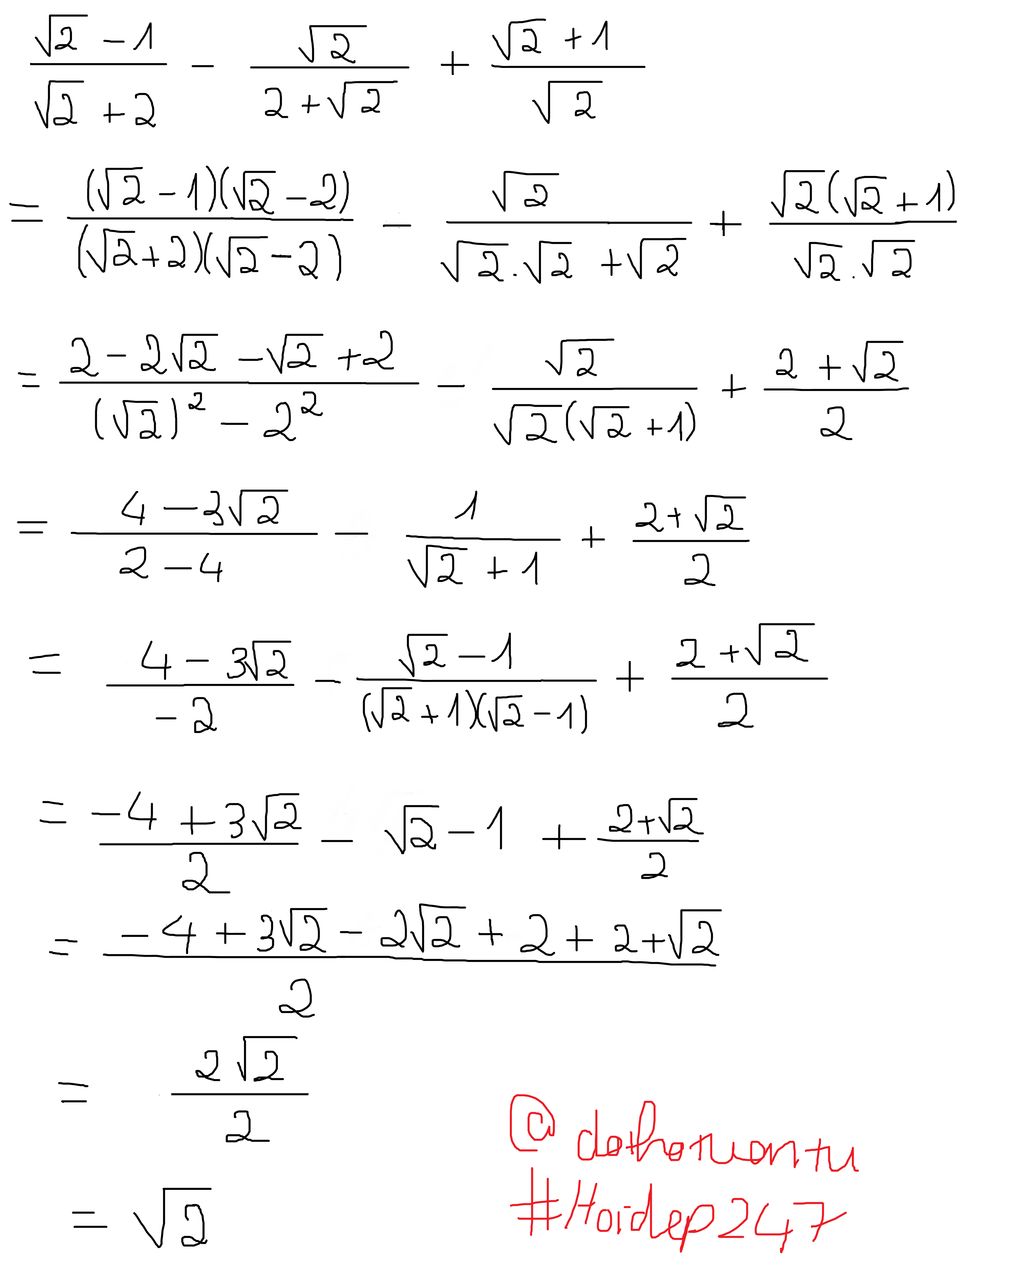 (√2 - 1)/(√2 + 2) - √2/(2 + √2) + (√2 + 1)/√2
= ((√2 - 1)(√2 - 2))/((√2 + 2)(√2 - 2)) - √2/(√2.√2 + √2) + (√2(√2 + 1))/(√2.√2)
= (2 - 2√2 - √2 + 2)/((√2)² - 2²) - √2/(√2(√2 + 1)) + (2 + √2)/2
= (4 - 3√2)/(2 - 4) - 1/(√2 + 1) + (2 + √2)/2
= (4 - 3√2)/(-2) - (√2 - 1)/((√2 + 1)(√2 - 1)) + (2 + √2)/2
= (-4 + 3√2)/2 - √2 - 1 + (2 + √2)/2
= (-4 + 3√2 - 2√2 + 2 + 2 + √2)/2
= (2√2)/2
= √2
#Hoidep247